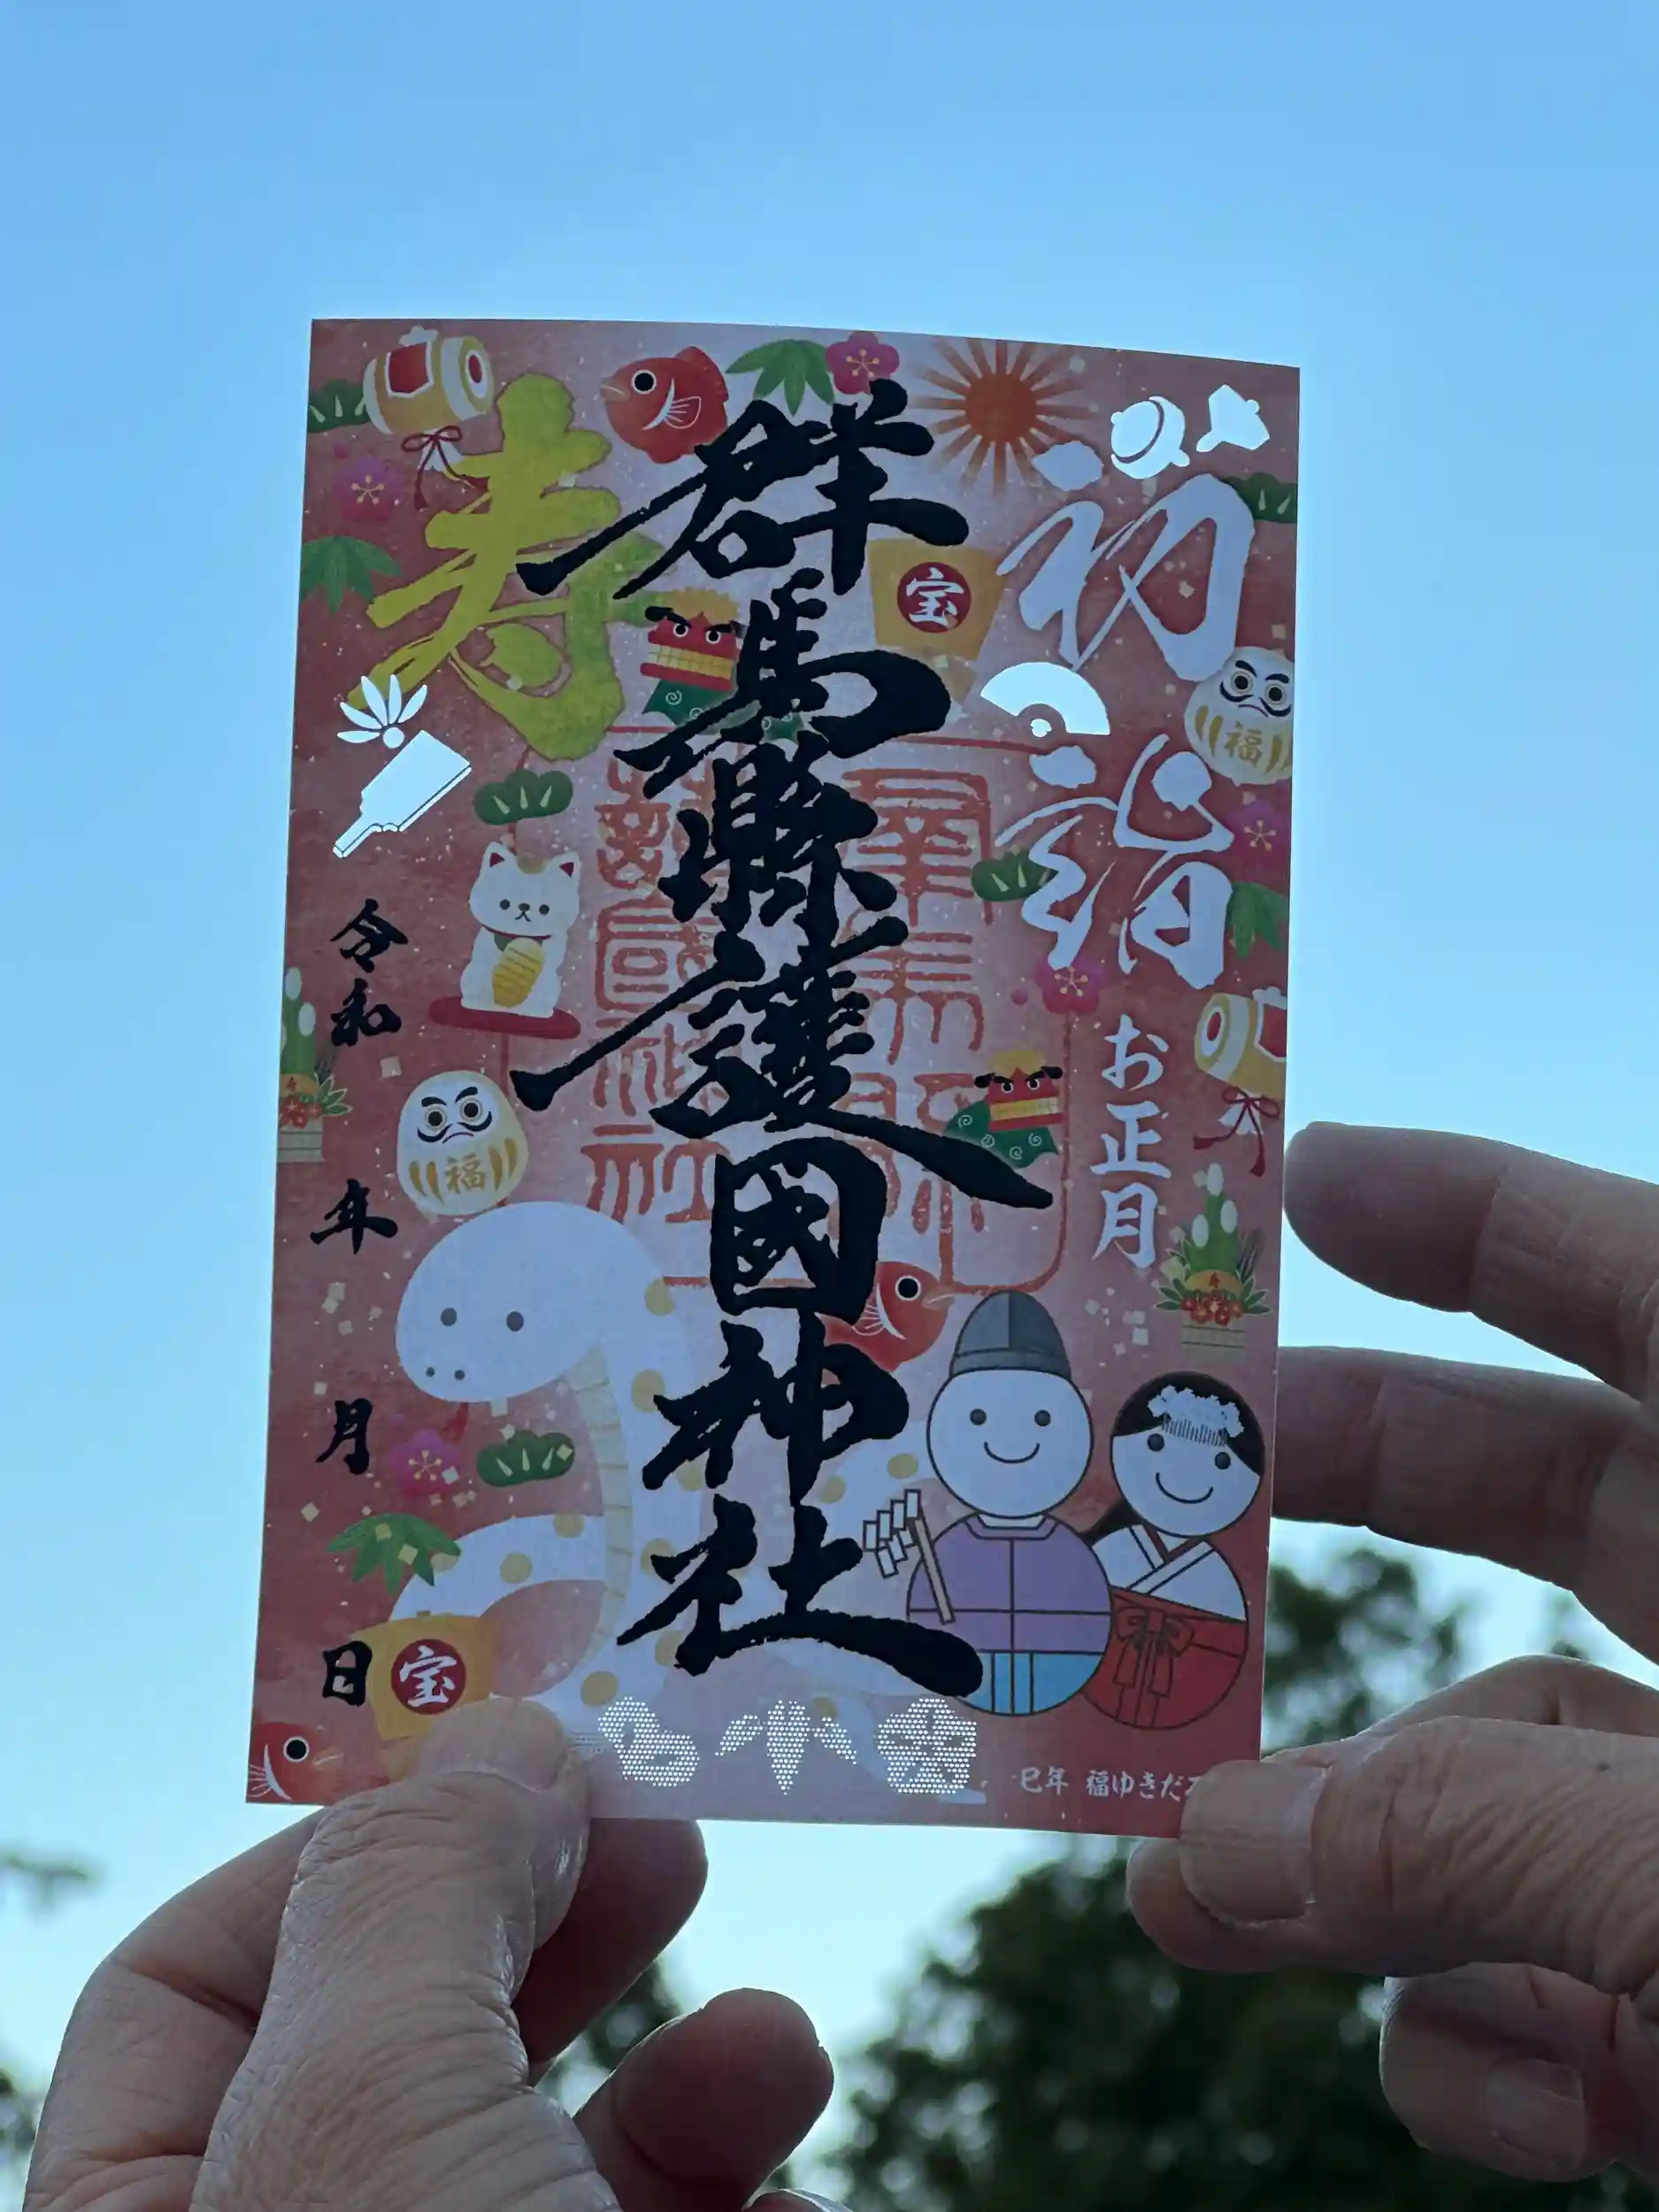 初詣
お正月
群馬縣護國神社
寿
令和 年 月 日
宝
福
福
宝
巳年 福ゆきだ